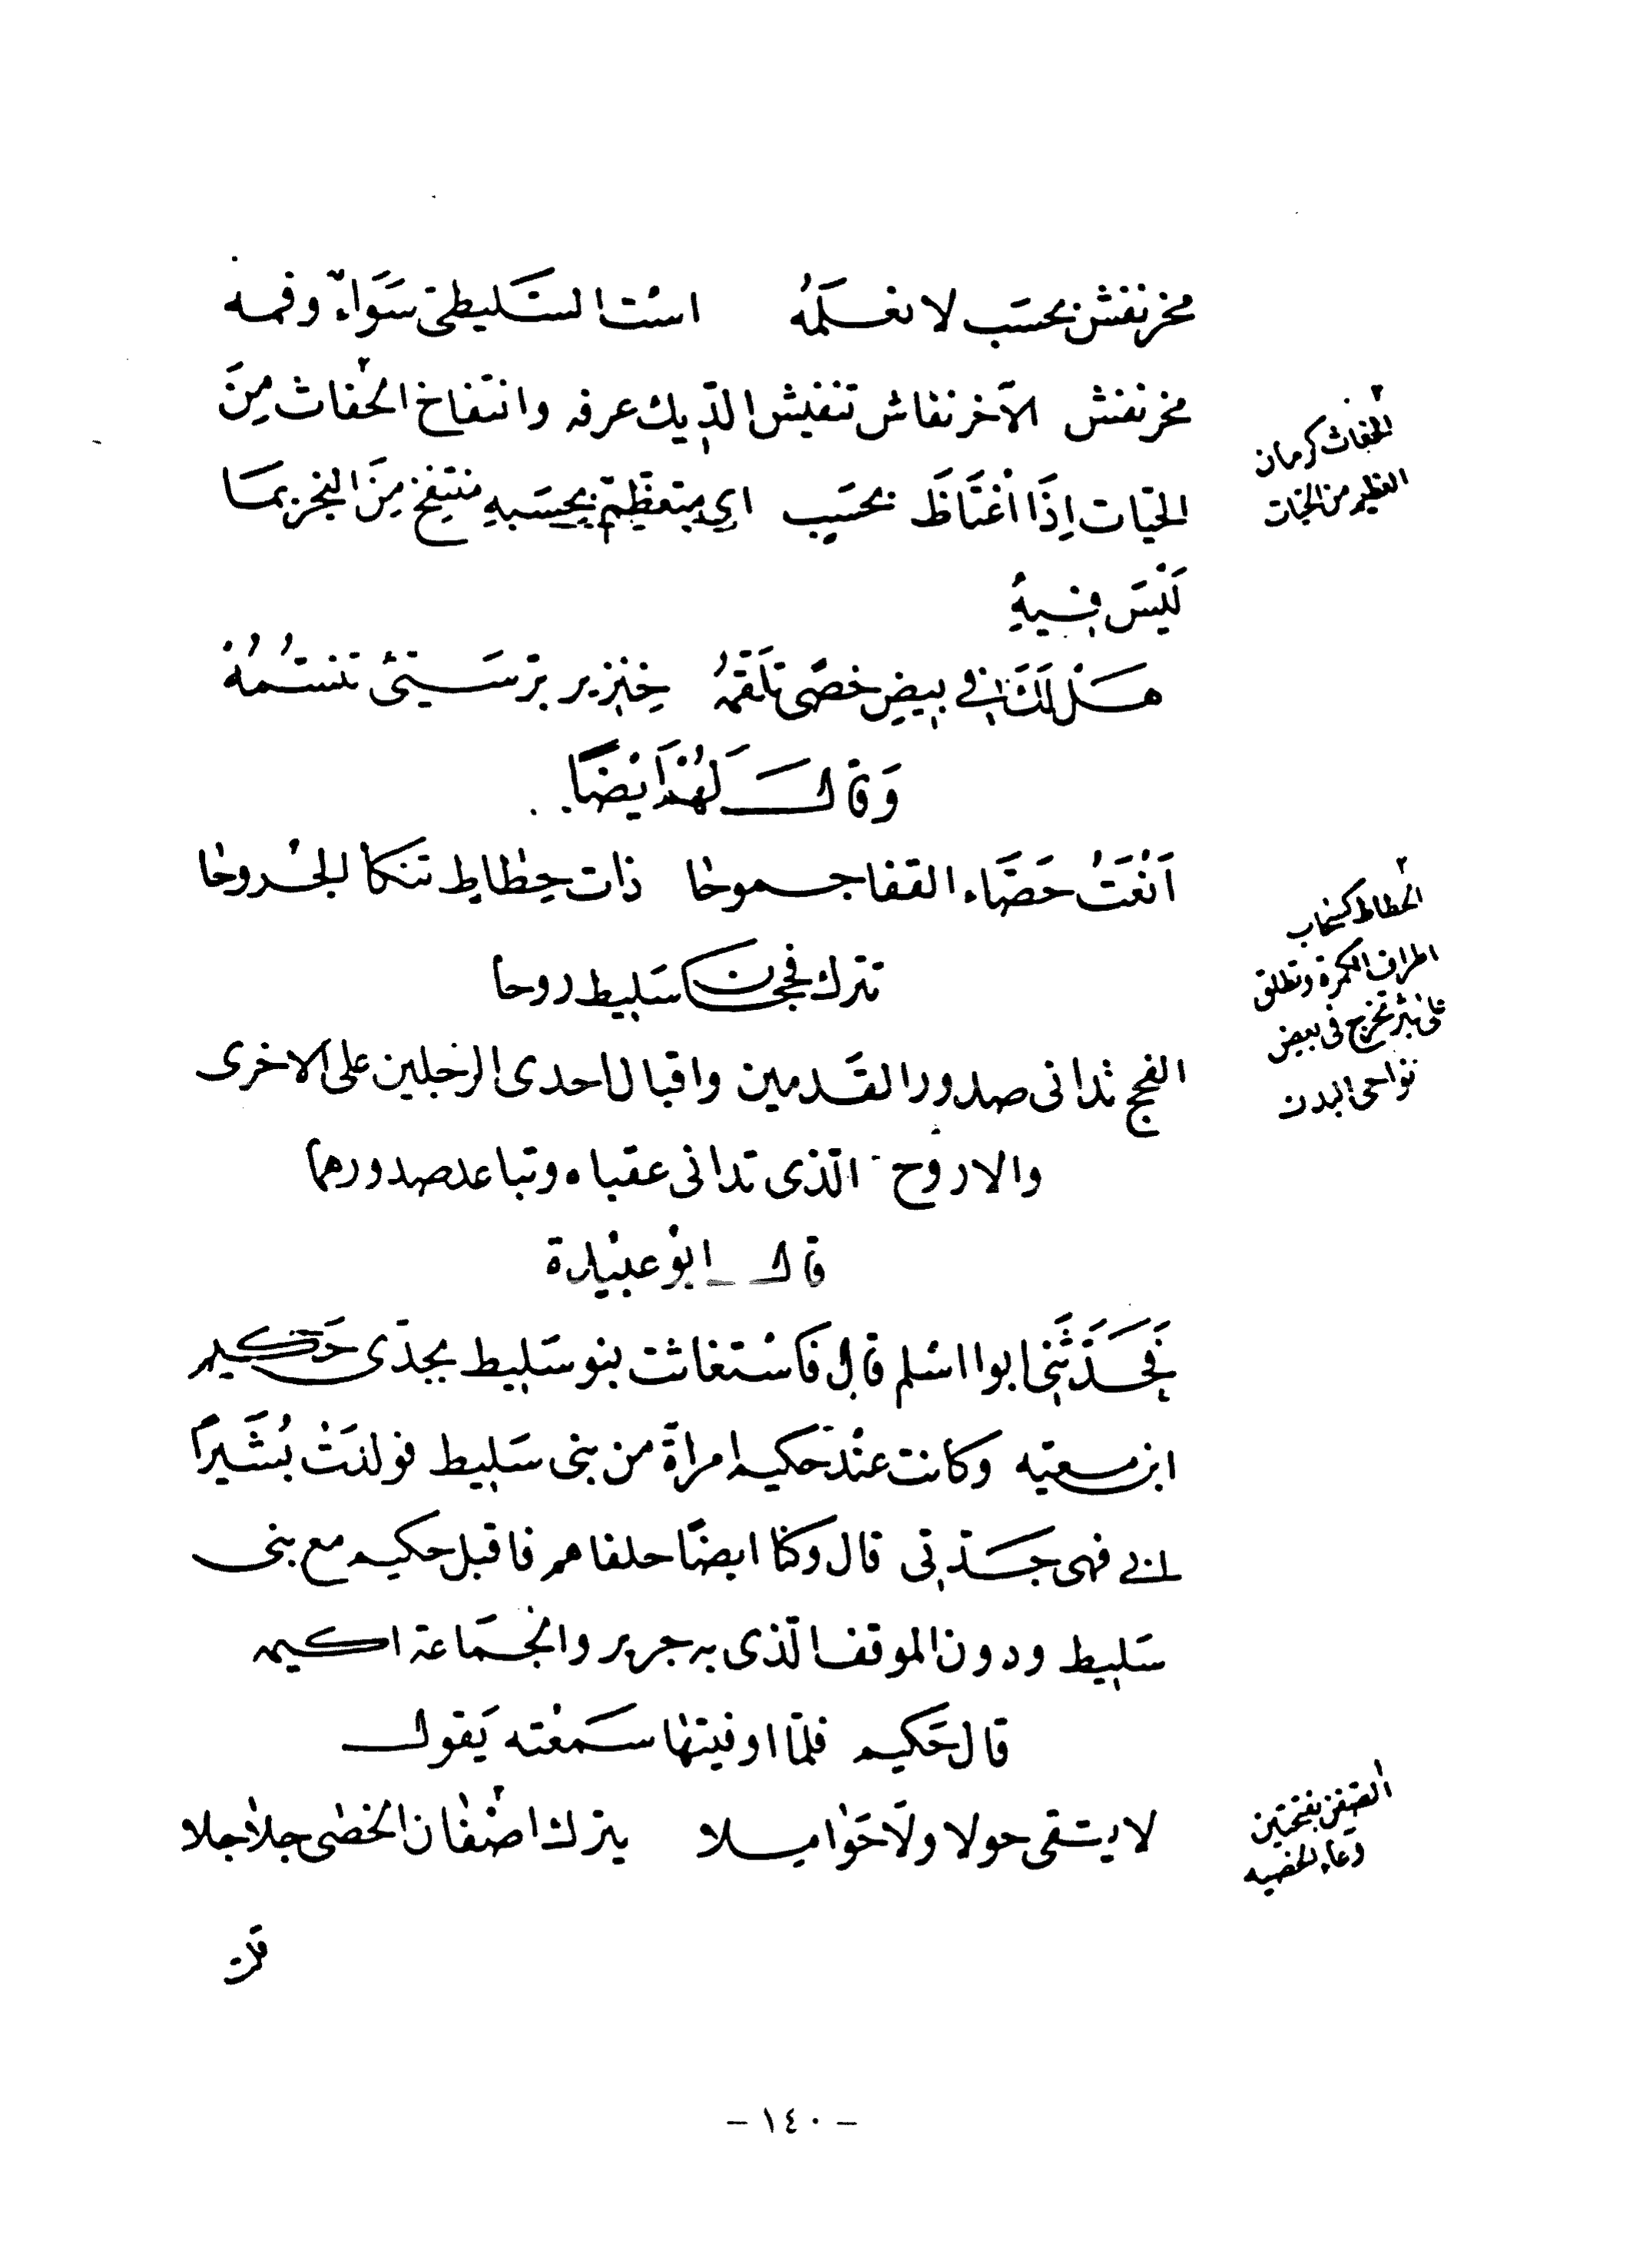 مخرنفش بحسَب لا نعلَمُه استُ السَّليطىّ سَوَاءٌ وفمه
مخرنفش الآخرنفاش تنفيش الدّيك عرفه وانتفاخ الحُفاث مِنَ
الحيّات اِذَا اغْتَاظَ بحسَبٍ اى متعظّم بحسَبهِ منتفِخ مِنَ الفخر بمَا
لَيْسَ فيهِ
هَل لك فى بيضِ خصًى تلَقَّمُهْ خِنزير برّ سَيّئ تنسّمُهْ
وَقالَ لَهُمْ اَيْضًا
اَنْعَتُ حَصَّاء القفا جموحا ذات حِطاطٍ تنكأ الجُروحا
تترك فحج سَليط روحا
الفحج تدانى صدور القَدمين واقبال احدى الرّجلين على الاخرى
والاروح الّذى تدانى عقباه وتباعد صدورهما
قال ابوْ عبيْدة
فَحَدَّثَنى ابوا اسْلم قال فاسْتغاثت بنو سَليط بجدّى حَكيم
ابن معيّه وكانت عنْد حكيم امراةَ من بنى سَليط فولدَتْ بُشَيرًا
لابى فهى جَدّتى قال وكنّا ايضًا حلفاهم فاقبل حكيم مع بنى
سَليط ودون الموقف الّذى به جرير والجمَاعة اكيمه
قال حَكيم فلمّا اوفيتها سَمعْته يَقول
لا يتّقى حولا ولَا حَوَاملا يترك اصْفان الخصٰى جلاجلا
الحُفاث كرمان
العظيم من الحيّات
الحُطاط كسحاب
اطراف الكمرة وتطلق
على بثر تخرج فى بعض
نواحى البدن
الصَفَن بفتحتين
وعاء الخصيه
قلت
- ١٤٠ -